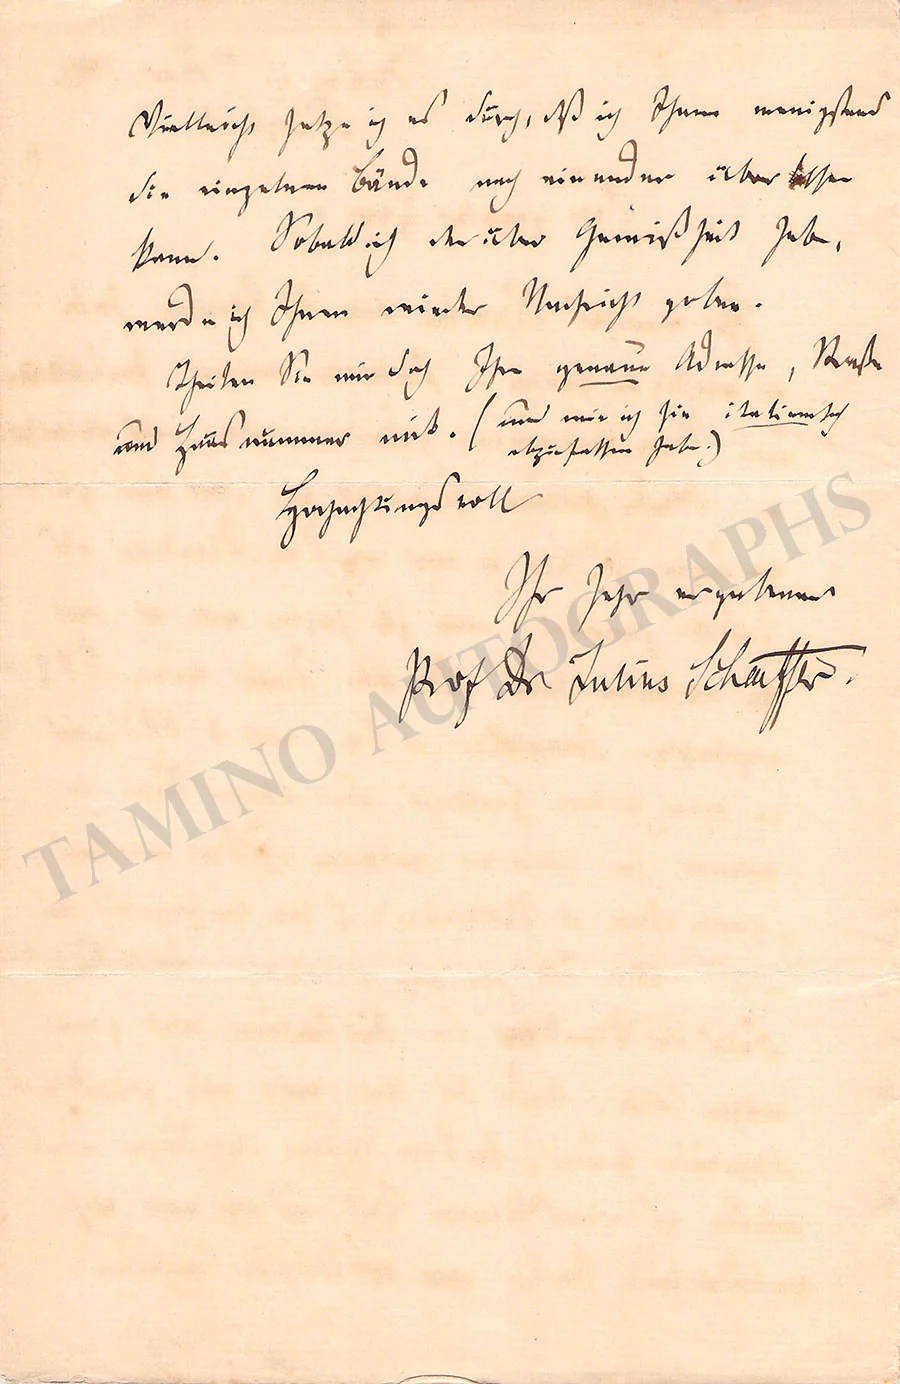 Vielleicht setze ich es durch, daß ich Ihnen wenigstens
die einzelnen Bände nach einander überlassen
kann. Sobald ich darüber Gewißheit habe,
werde ich Ihnen wieder Nachricht geben.
Theilen Sie mir doch Ihre genaue Adresse, Straße
und Hausnummer mit. (und wie ich sie italienisch
abzufassen habe.)
Hochachtungsvoll
Ihr sehr ergebener
Prof Dr Julius Schaeffer.
TAMINO AUTOGRAPHS